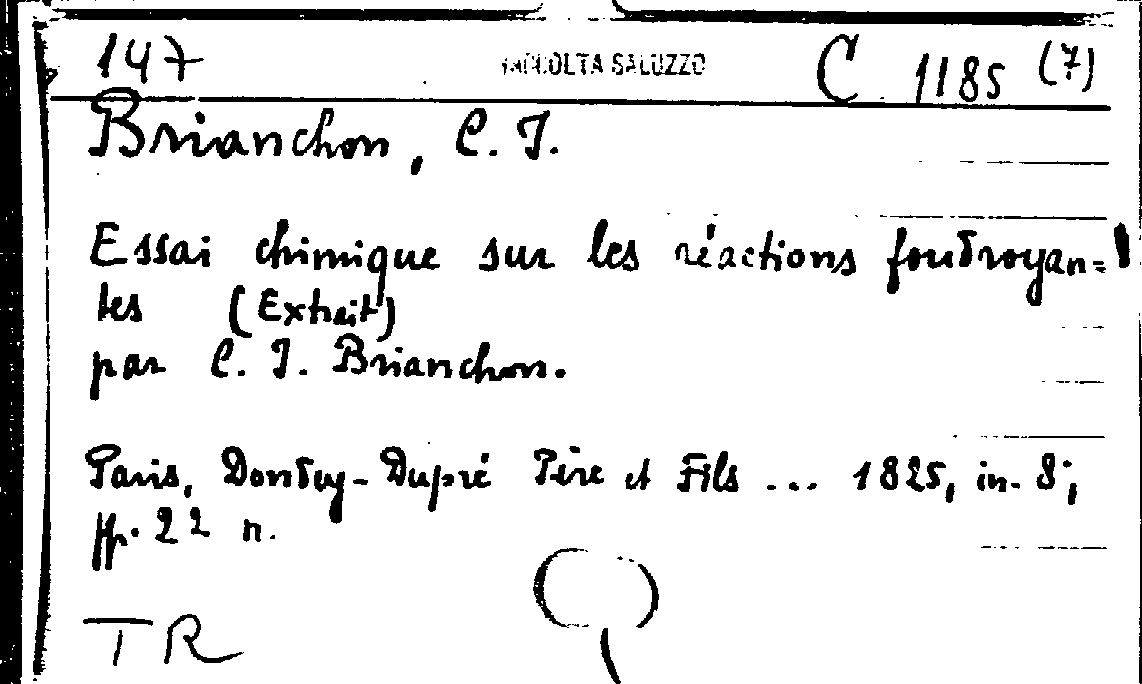 147 RACCOLTA SALUZZO C 1185 (7)
Brianchon, C. J.
Essai chimique sur les réactions foudroyan=
tes (Extrait)
par C. J. Brianchon.
Paris, Dondey-Dupré Père et Fils ... 1825, in-8;
pp. 22 n.
TR